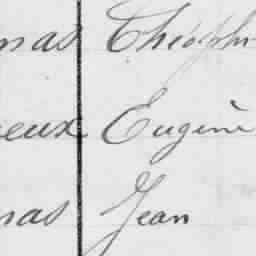 nas Théoph
eux Eugène
nas Jean